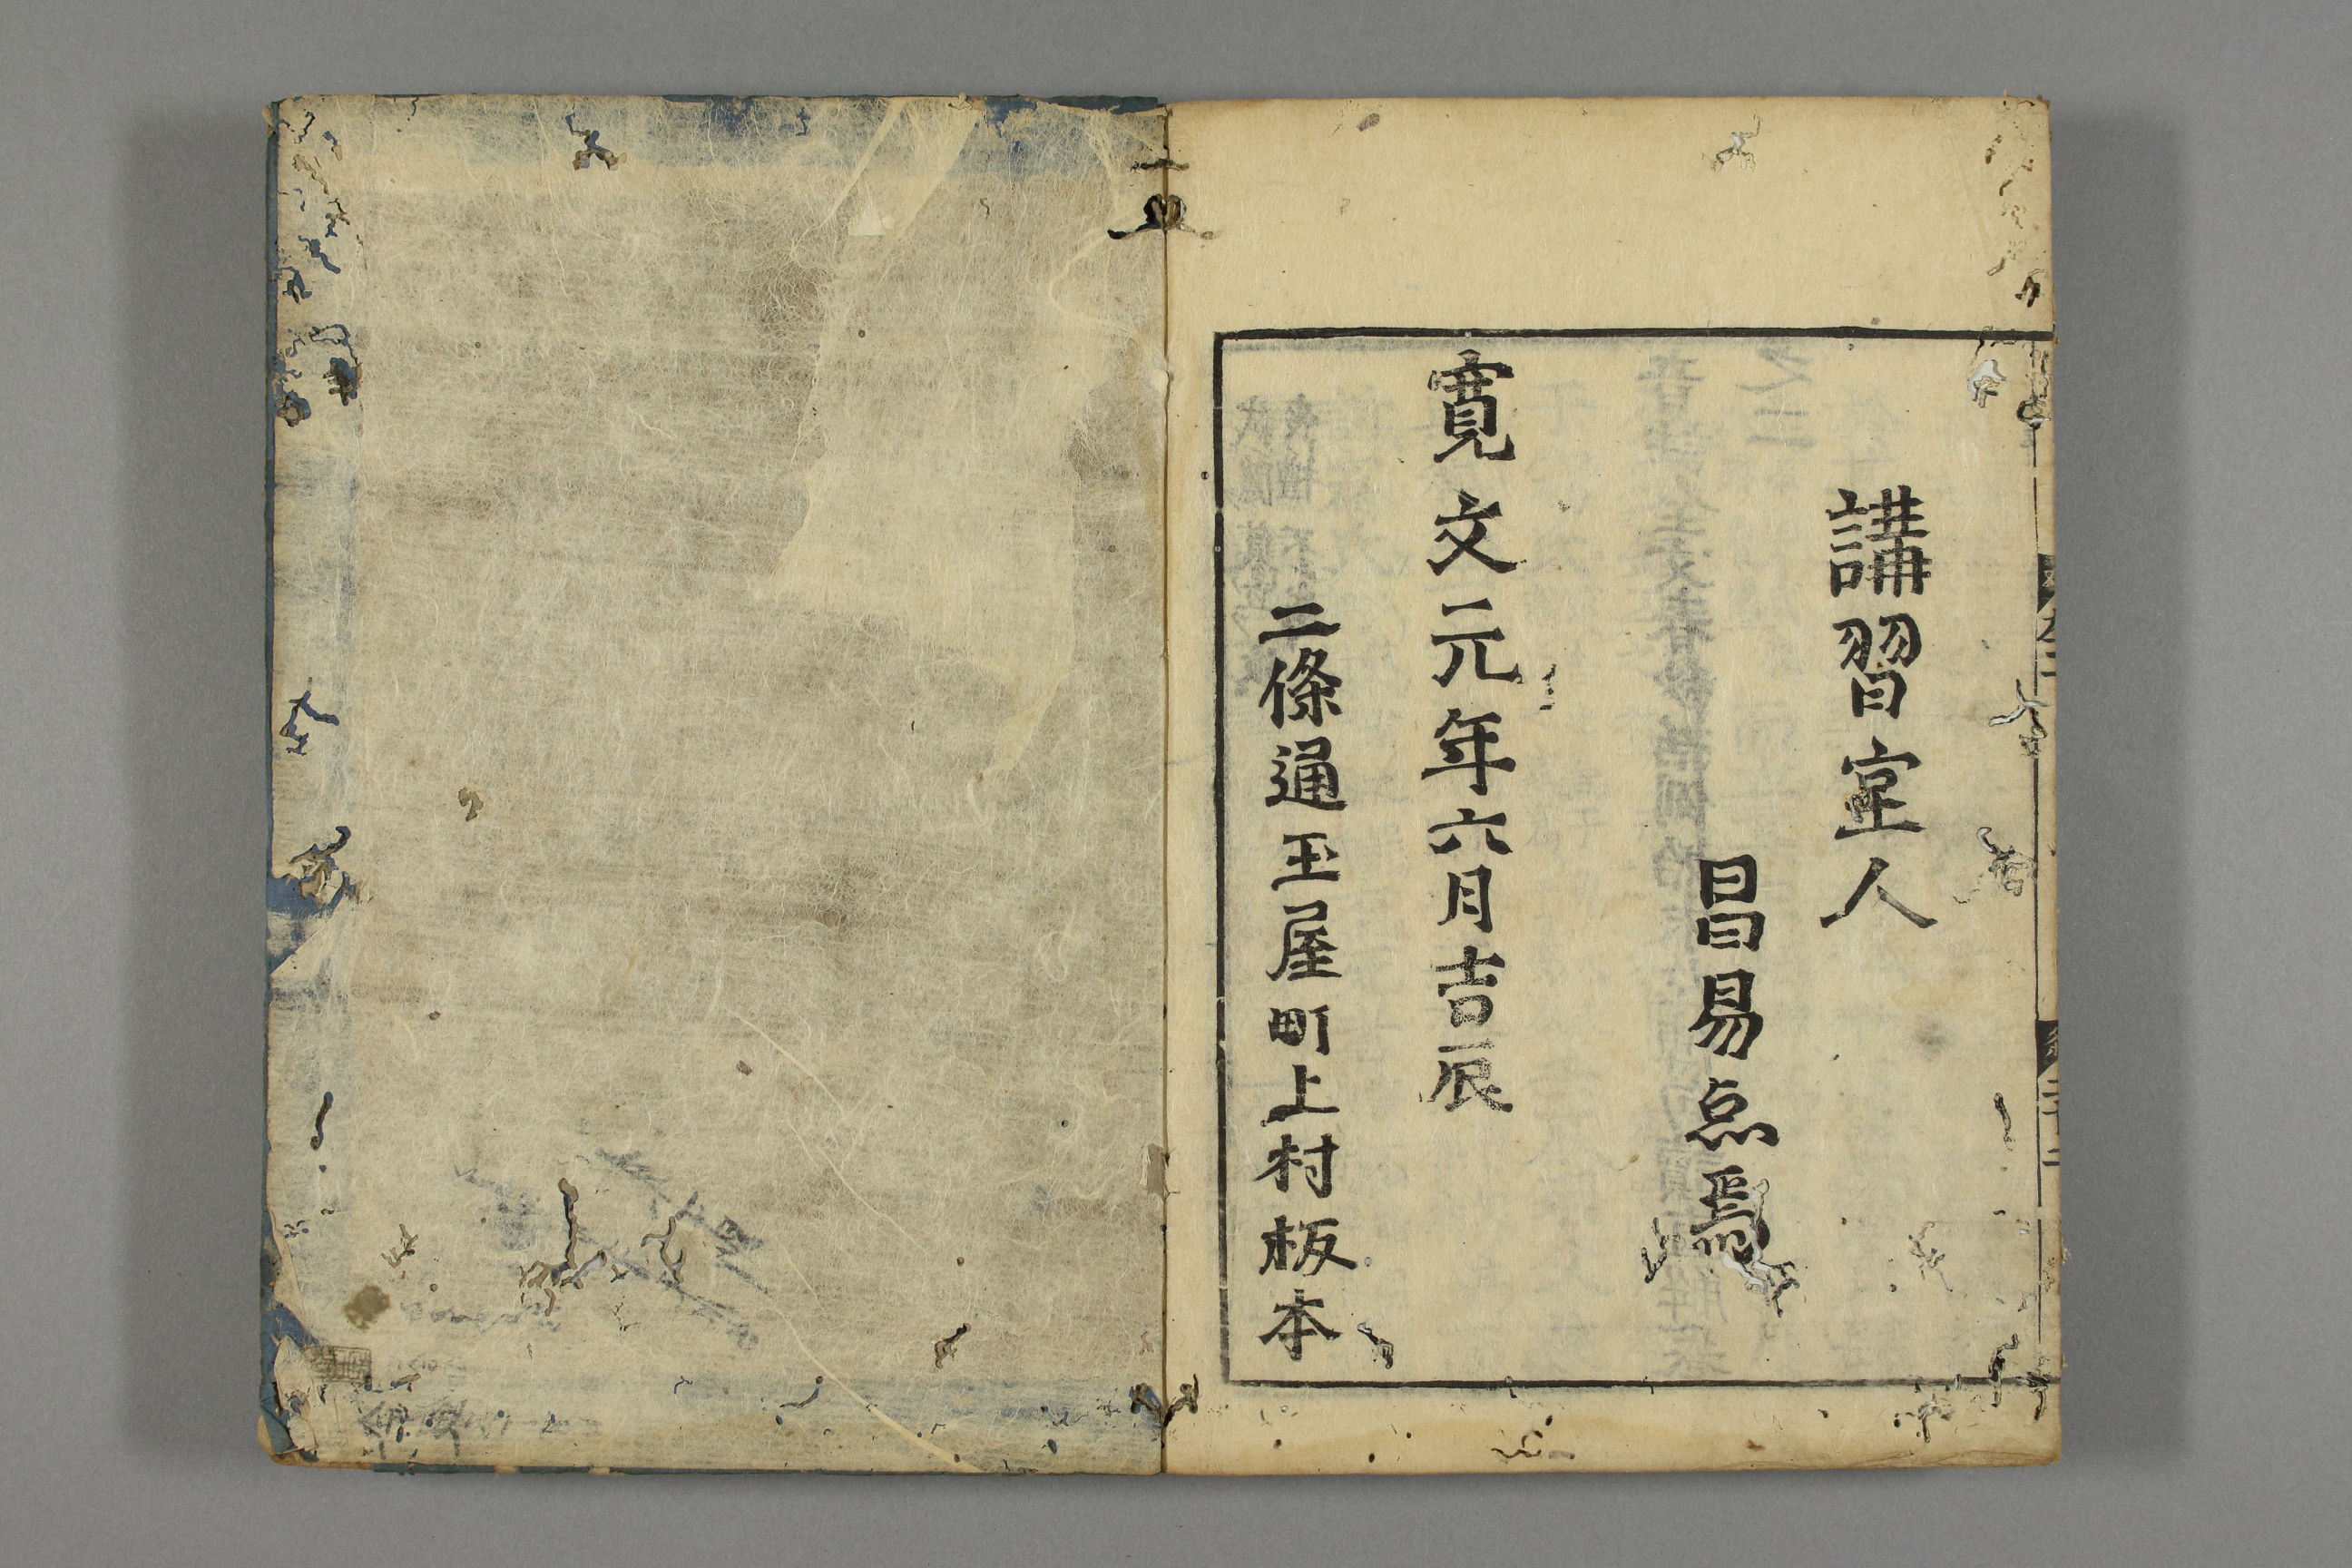 講習室人
昌易点焉
寛文元年六月吉辰
二條通玉屋町上村板本